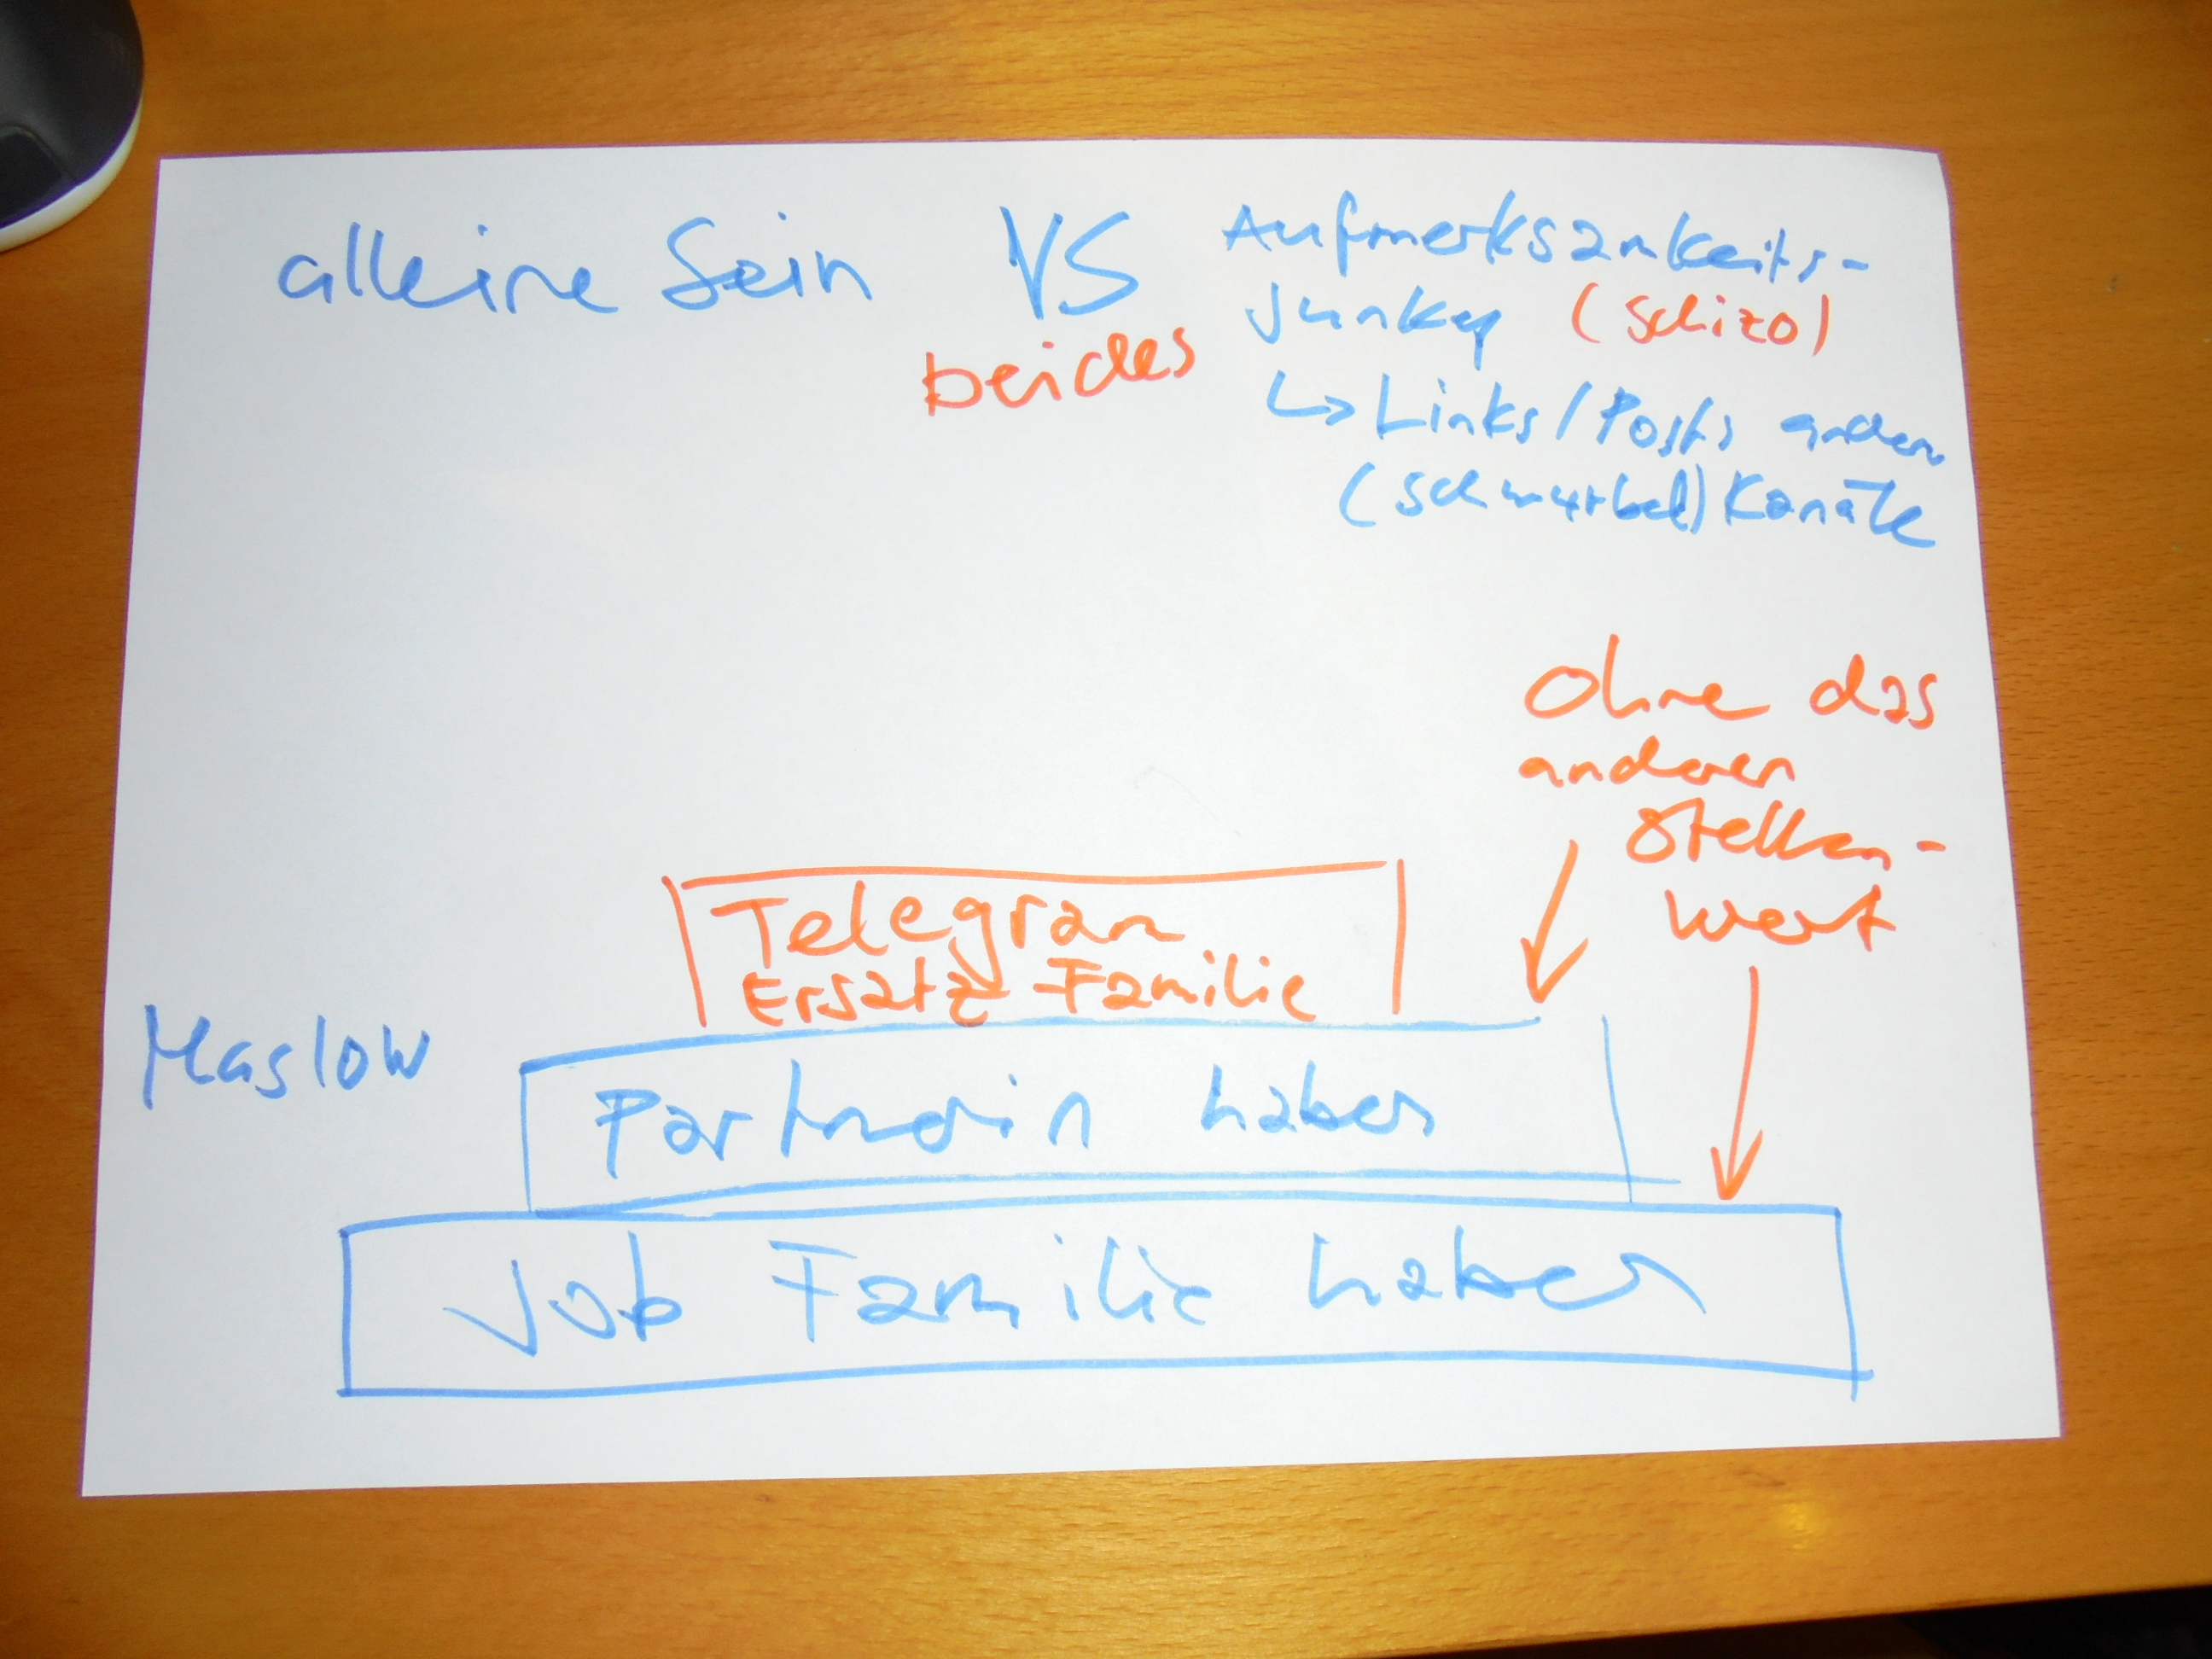 alleine Sein VS Aufmerksamkeits-
Junky (schizo)
beides
↳ Links/Posts anderer
(schwurbel) Kanäle
Ohne das
anderen
Stellen-
wert
Telegram
Ersatz-Familie
Maslow
Partnerin haben
Job Familie haben